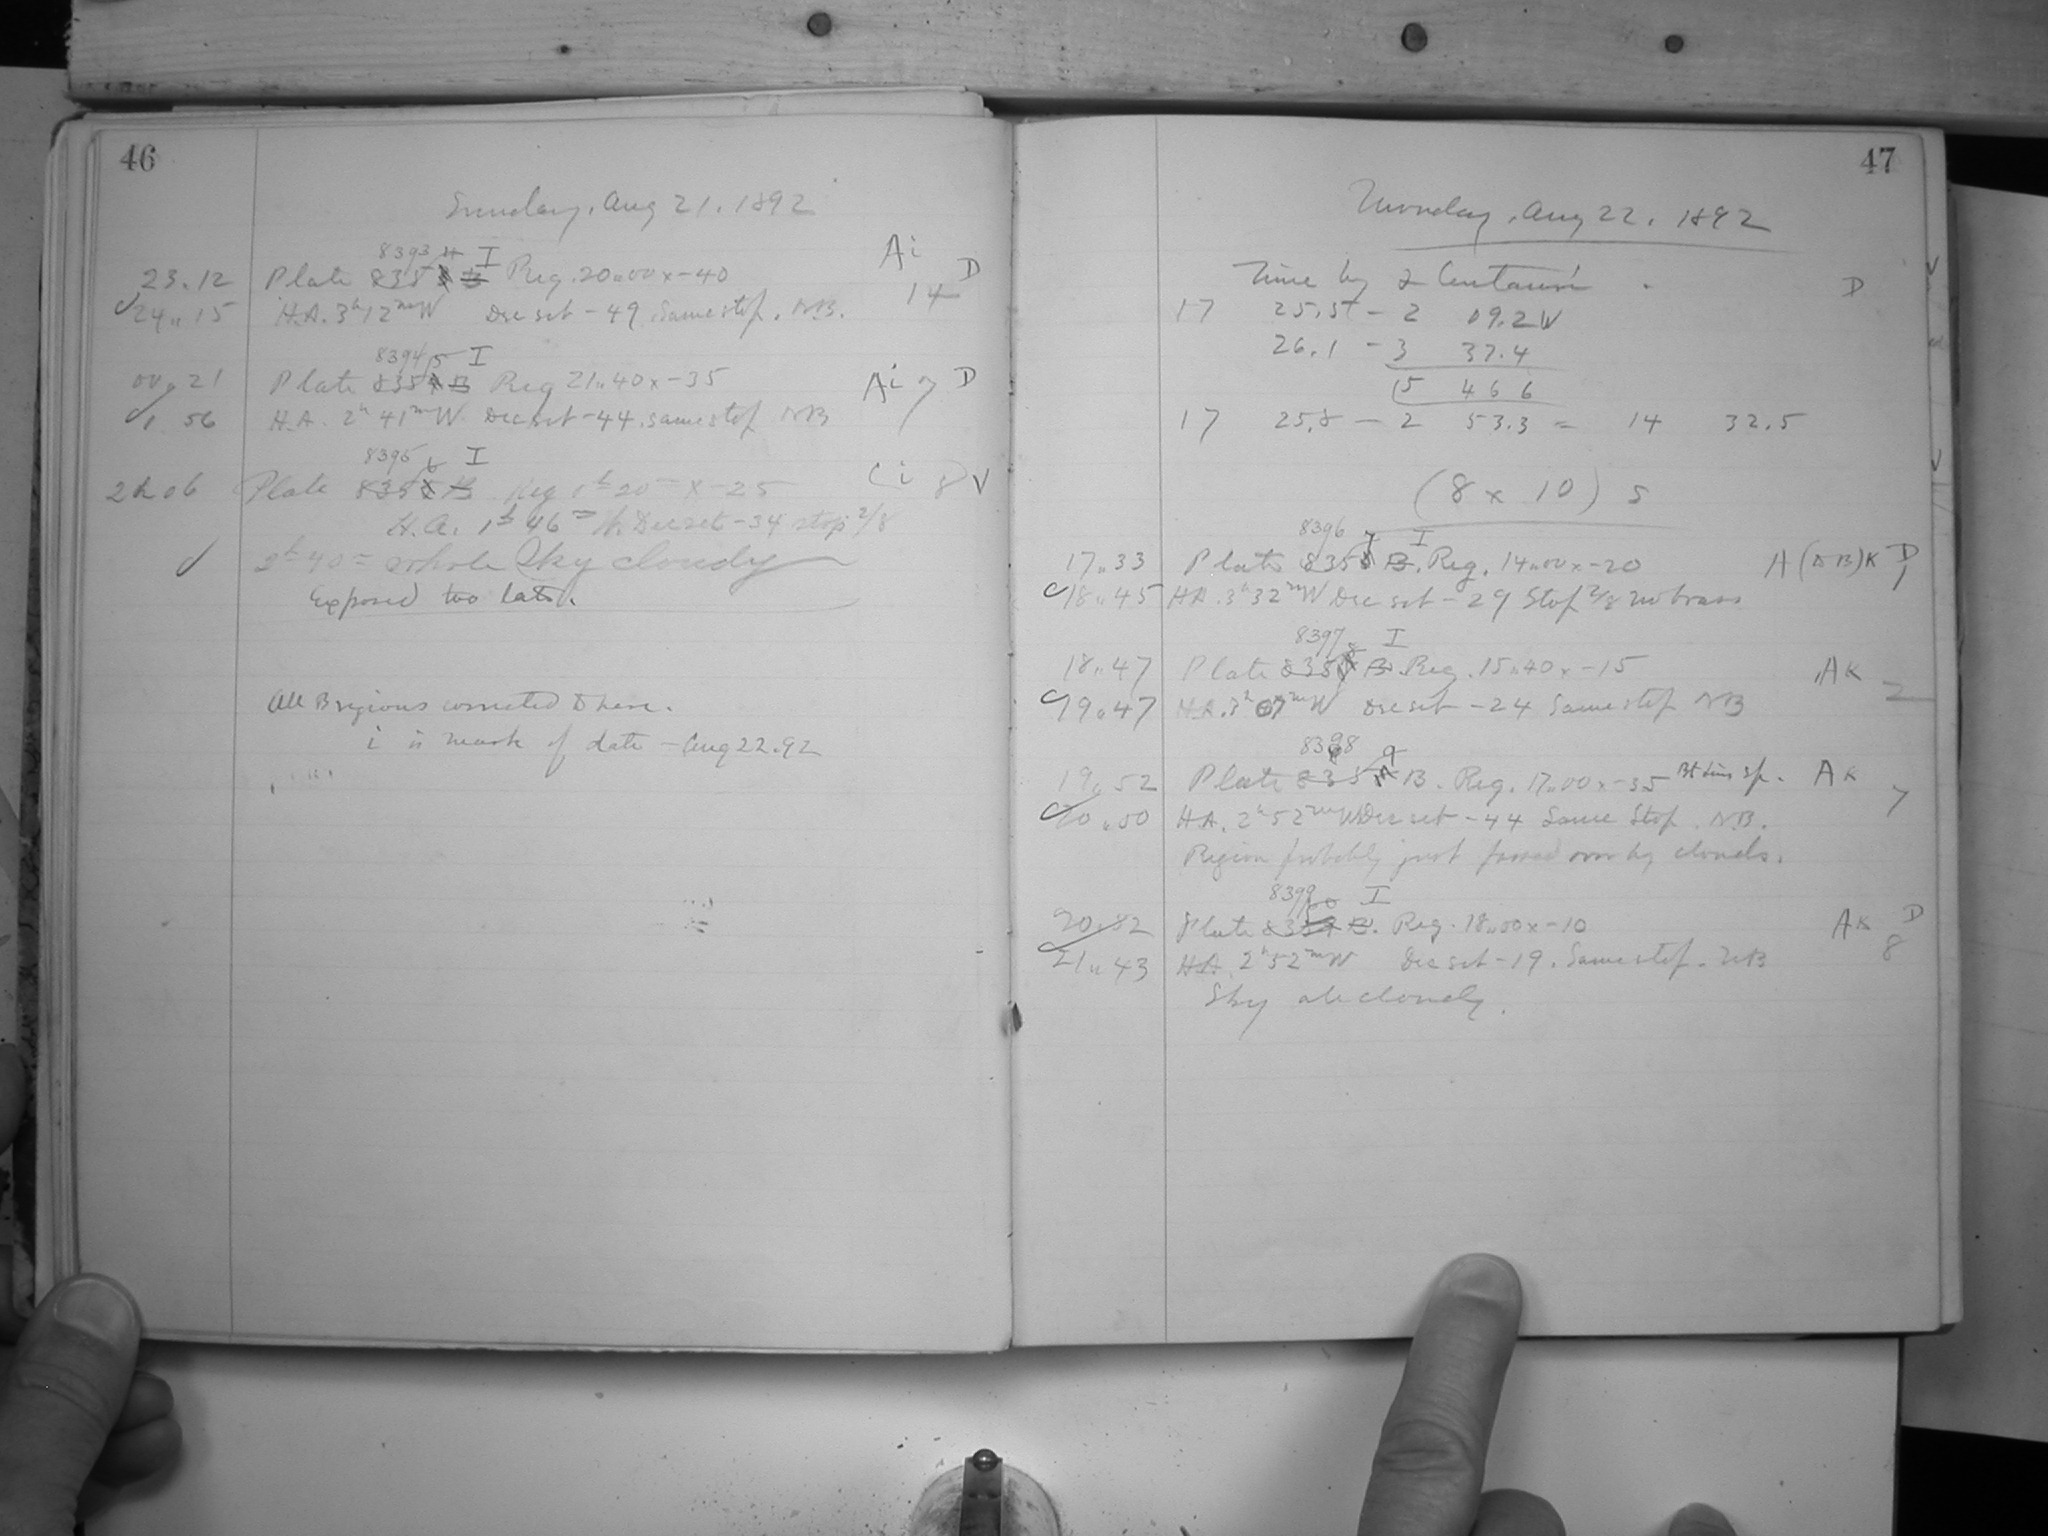 46
Sunday, Aug 21. 1892
8393 I Ai
23.12 Plate 835 B Reg. 20"00x-40 D
24"15 H.A. 3h12mW Dec set -49. Same stop. NB. 14
8394 I
00"21 Plate 835 B Reg 21"40x-35 Ai 7 D
1 56 H.A. 2h 41mW. Dec set -44. same stop NB
8395 I
2h 06 Plate 835 B Reg 0h20m x-25 Ci 8 V
H.A. 1h 46m W. Dec set -34 stop 2/8
2h 40m whole Sky cloudy
Exposed too late.
All B regions corrected to here.
i is mark of date - Aug 22.92
47
Monday, Aug 22. 1892
Time by α Centauri D
17 25.5 - 2 09.2W
26.1 - 3 37.4
5 46 6
17 25.8 - 2 53.3 = 14 32.5
(8 x 10) s
8396 I
17"33 Plate 835 B. Reg. 14"00x-20 A (NB)K D
18"45 HA. 3h32mW Dec set -29 Stop 2/8 No brass 1
8397 I
18"47 Plate 835 B. Reg. 15"40x-15 AK
19"47 H.A. 3h07mW Dec set -24 Same stop NB 2
8398 9
19"52 Plate 835 B. Reg. 17"00x-35 AK
20"50 HA. 2h52mW Dec set -44 Same Stop. NB. 7
Region probably just passed over by clouds.
8399 I
20"52 Plate B. Reg. 18"00x-10 AK D
21"43 HA. 2h52mW Dec set -19. Same stop. NB 8
Sky all cloudy.